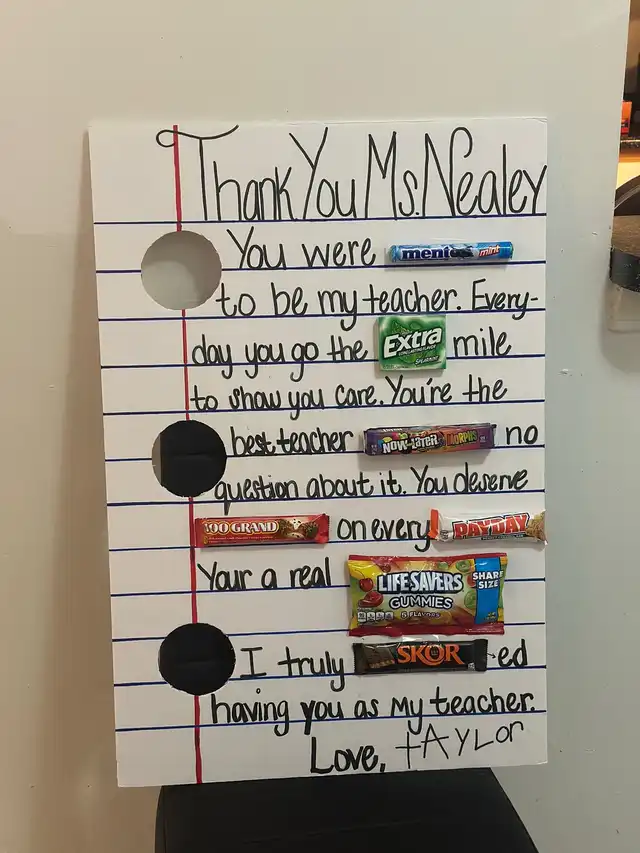 Thank You Ms. Nealey
You were mentos mint
to be my teacher. Every-
day you go the Extra SPEARMINT mile
to show you care. You're the
best teacher NOW and LATER MORPHS no
question about it. You deserve
100 GRAND on every PAYDAY
Your a real LIFE SAVERS GUMMIES 5 FLAVORS SHARE SIZE
I truly SKOR ed
having you as my teacher.
Love, tAYLor